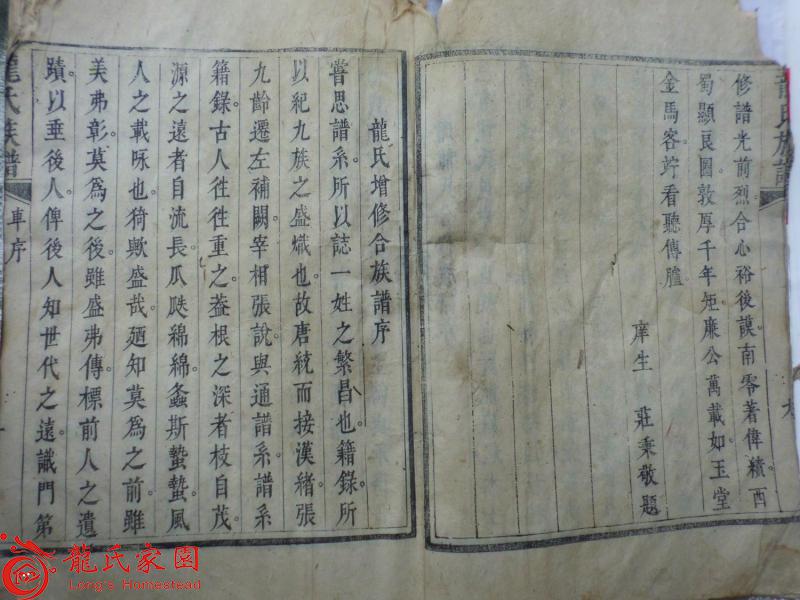 龍氏族譜
修譜光前烈。合心裕後謨。南零著偉績。西
蜀顯良圖。敦厚千年矩。廉公萬載如。玉堂
金馬客。竚看聽傳臚。
庠生 莊秉敬題
龍氏增修合族譜序
嘗思譜系。所以誌一姓之繁昌也。籍錄。所
以紀九族之盛熾也。故唐統而接漢緒。張
九齡遷左補闕。宰相張說。與通譜系。譜系
籍錄。古人徃徃重之。蓋根之深者枝自茂。
源之遠者自流長。瓜瓞綿綿。螽斯蟄蟄。風
人之載咏也。猗歟盛哉。廼知莫為之前。雖
美弗彰。莫為之後。雖盛弗傳。標前人之遺
蹟。以垂後人。俾後人知世代之遠。識門第
龍氏族譜
車序
龍氏家園
Long's Homestead